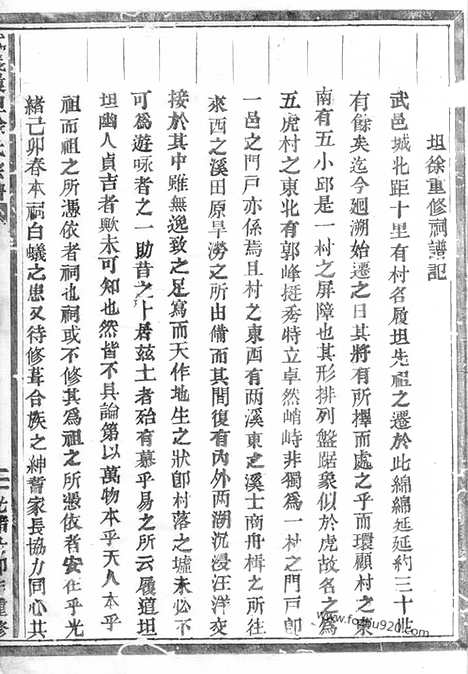 坦徐重修祠譜記
武邑城北距十里有村名履坦先祖之遷於此綿綿延延約三十世
有餘矣迄今廻溯始遷之日其將有所擇而處之乎而環顧村之東
南有五小邱是一村之屏障也其形排列盤踞象似於虎故名之為
五虎村之東北有郭峰挺秀特立卓然峭峙非獨為一村之門戸卽
一邑之門戸亦係焉且村之東西有兩溪東之溪士商舟楫之所往
來西之溪田原旱澇之所由備而其間復有內外兩湖沉浸汪洋交
接於其中雖無逸致之足寫而天作地生之狀卽村落之墟未必不
可為遊咏者之一助昔之卜居茲土者殆有慕乎易之所云履道坦
坦幽人貞吉者歟未可知也然皆不具論第以萬物本乎天人本乎
祖而祖之所憑依者祠也祠或不修其為祖之所憑依者安在乎光
緒己卯春本祠白蟻之患又待修葺合族之紳耆家長協力同心共
光緒己卯年重修
www.fobu920.com